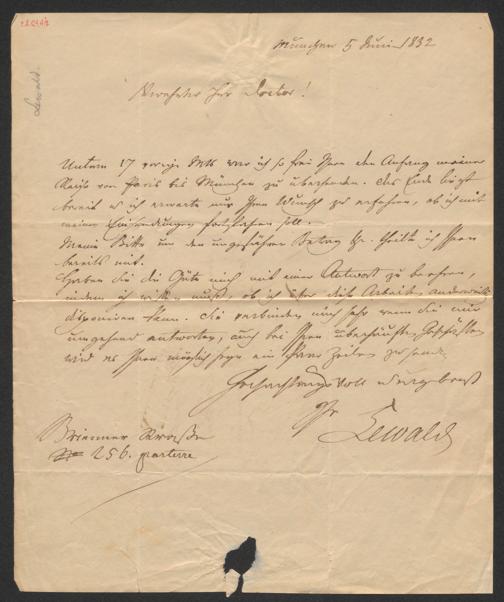 Lewald.
München 5 Juni 1832
Verehrter Herr Doctor!
Unterm 17 vorigen Mts war ich so frei Ihnen den Anfang meiner
Reise von Paris bis München zu übersenden. Das Ende liegt
bereit u ich erwarte nur Ihren Wunsch zu erfahren, ob ich mit
meinen Einsendungen fortfahren soll.
Meine Bitte um den ungefähren Betrag theilte ich Ihnen
bereits mit.
Haben Sie die Güte mich mit einer Antwort zu beehren,
indem ich wissen muß, ob ich über diese Arbeit anderweit
disponiren kann. Sie verbinden mich sehr wenn Sie mir
umgehend antworten, auch bei Ihren überhäuften Geschäften
wird es Ihnen möglich seyn ein Paar Zeilen zu senden.
Hochachtungsvoll u ergebenst
Ihr
Lewald
Brienner Straße
No 256. parterre